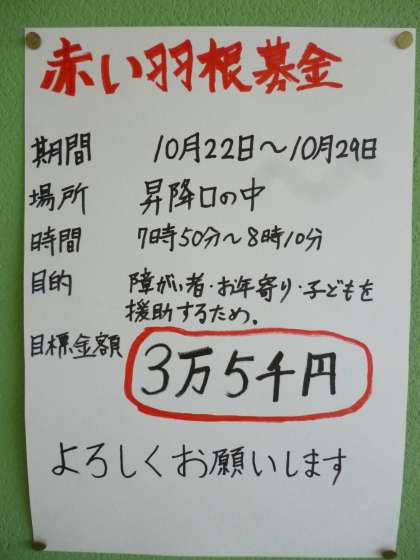 赤い羽根募金
期間 10月22日～10月29日
場所 昇降口の中
時間 7時50分～8時10分
目的 障がい者・お年寄り・子どもを
援助するため．
目標金額 3万5千円
よろしくお願いします